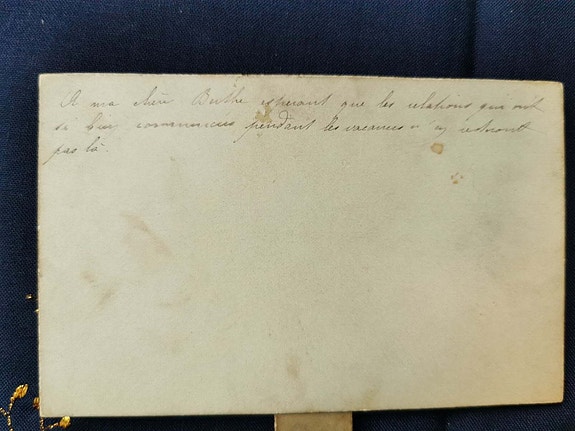 A ma chère Berthe espérant que les relations qui ont
si bien commencées pendant les vacances n'en resteront
pas là.